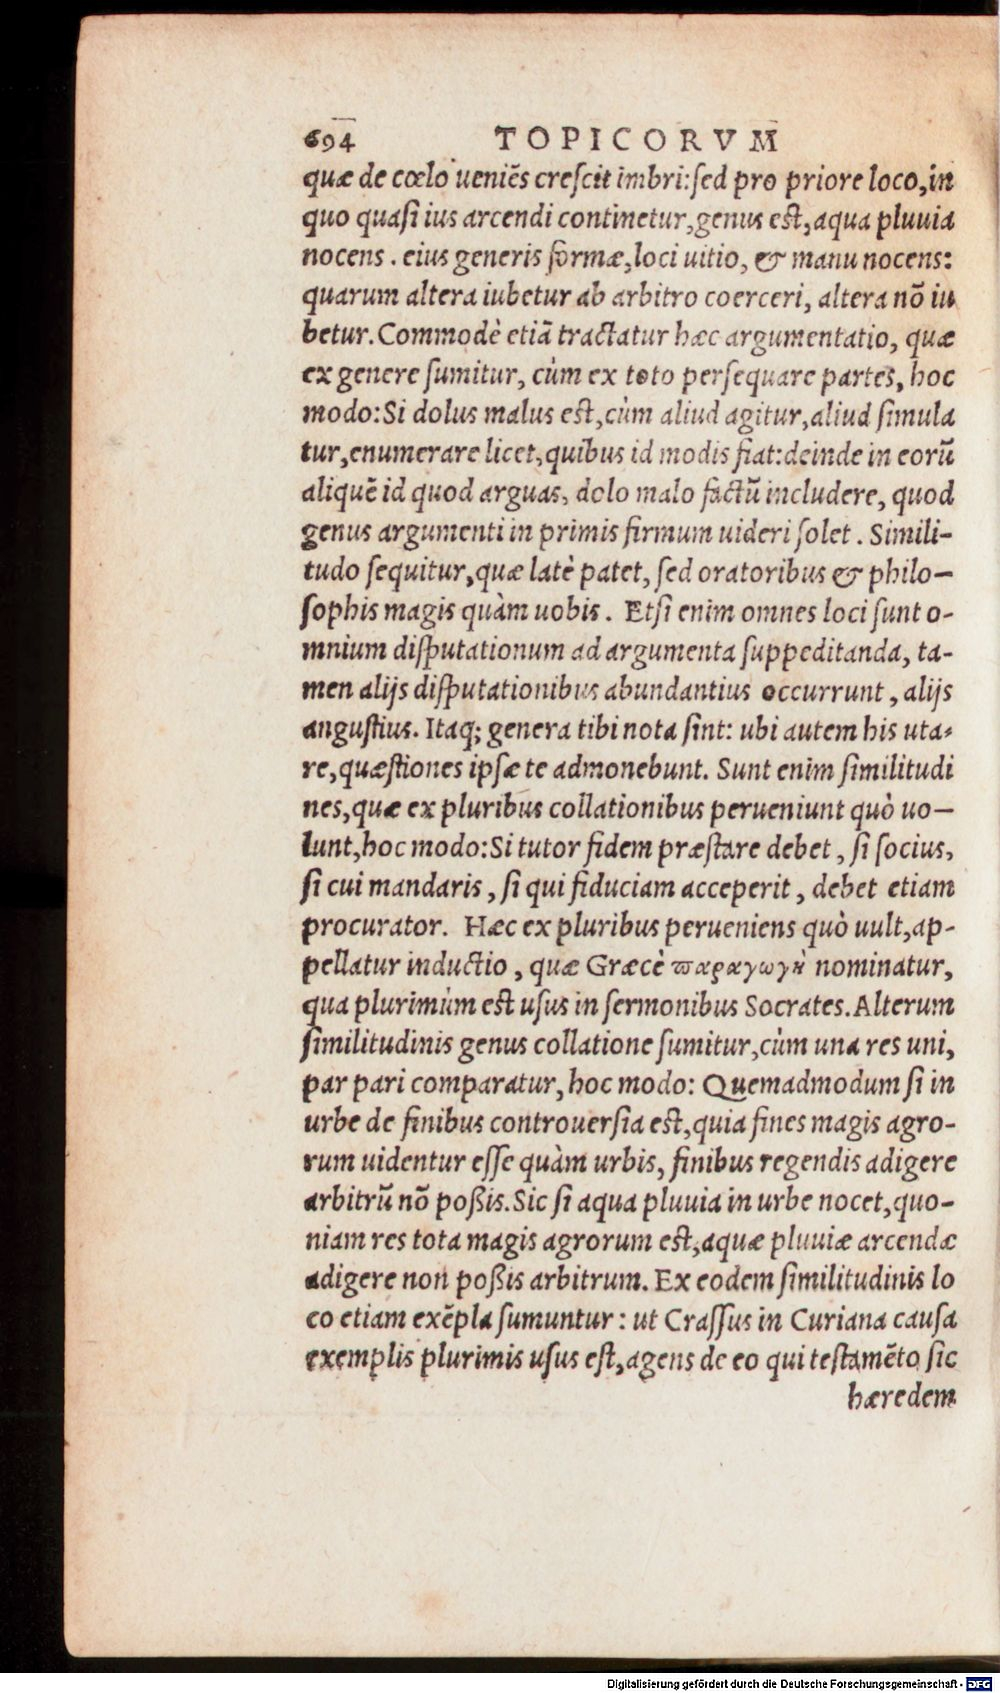 694 TOPICORVM
quæ de cœlo ueniẽs crescit imbri: sed pro priore loco, in
quo quasi ius arcendi continetur, genus est, aqua pluuia
nocens. eius generis formæ, loci uitio, & manu nocens:
quarum altera iubetur ab arbitro coerceri, altera nõ iu
betur. Commodè etiã tractatur hæc argumentatio, quæ
ex genere sumitur, cùm ex toto persequare partes, hoc
modo: Si dolus malus est, cùm aliud agitur, aliud simula
tur, enumerare licet, quibus id modis fiat: deinde in eorũ
aliquẽ id quod arguas, dolo malo factũ includere, quod
genus argumenti in primis firmum uideri solet. Simili-
tudo sequitur, quæ latè patet, sed oratoribus & philo-
sophis magis quàm uobis. Etsi enim omnes loci sunt o-
mnium disputationum ad argumenta suppeditanda, ta-
men alijs disputationibus abundantius occurrunt, alijs
angustius. Itaq; genera tibi nota sint: ubi autem his uta-
re, quæstiones ipsæ te admonebunt. Sunt enim similitudi
nes, quæ ex pluribus collationibus perueniunt quò uo-
lunt, hoc modo: Si tutor fidem præstare debet, si socius,
si cui mandaris, si qui fiduciam acceperit, debet etiam
procurator. Hæc ex pluribus perueniens quò uult, ap-
pellatur inductio, quæ Græcè παραγωγὴ nominatur,
qua plurimùm est usus in sermonibus Socrates. Alterum
similitudinis genus collatione sumitur, cùm una res uni,
par pari comparatur, hoc modo: Quemadmodum si in
urbe de finibus controuersia est, quia fines magis agro-
rum uidentur esse quàm urbis, finibus regendis adigere
arbitrũ nõ poßis. Sic si aqua pluuia in urbe nocet, quo-
niam res tota magis agrorum est, aquæ pluuiæ arcendæ
adigere non poßis arbitrum. Ex eodem similitudinis lo
co etiam exẽpla sumuntur: ut Crassus in Curiana causa
exemplis plurimis usus est, agens de eo qui testamẽto sic
hæredem
Digitalisierung gefördert durch die Deutsche Forschungsgemeinschaft - DFG